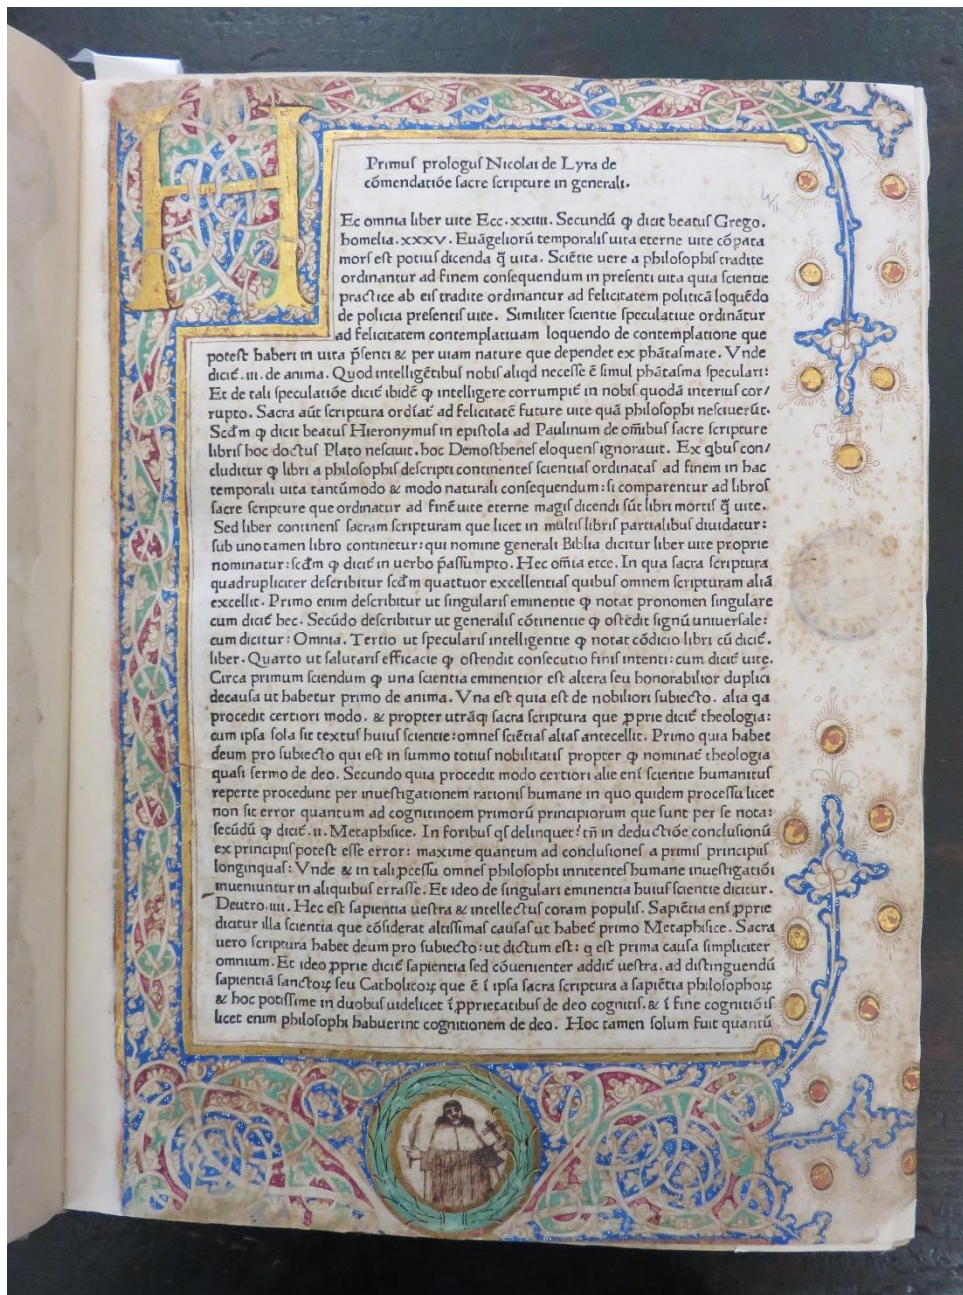 Primuſ prologuſ Nicolai de Lyra de
cōmendatiōe ſacre ſcripture in generali.
H
Ec omnia liber uite Ecc.xxiiii. Secundū ꝙ dicit beatuſ Grego.
homelia.xxxv. Euāgeliorū temporaliſ uita eterne uite cōpata
morſ eſt potiuſ dicenda q̄ uita. Sciētie uere a philoſophiſ tradite
ordinantur ad finem conſequendum in preſenti uita quia ſcientie
practice ab eiſ tradite ordinantur ad felicitatem politicā loquēdo
de policia preſentiſ uite. Similiter ſcientie ſpeculatiue ordinātur
ad felicitatem contemplatiuam loquendo de contemplatione que
poteſt haberi in uita p̄ſenti & per uiam nature que dependet ex phātaſmate. Vnde
dicit᷑.iii.de anima. Quod intelligētibuſ nobiſ aliqd neceſſe ē ſimul phātaſma ſpeculari:
Et de tali ſpeculatiōe dicit᷑ ibidē ꝙ intelligere corrumpit᷑ in nobiſ quodā interiuſ cor/
rupto. Sacra aūt ſcriptura ordīat᷑ ad felicitatē future uite quā philoſophi neſciuerūt.
Scd̄m ꝙ dicit beatuſ Hieronymuſ in epiſtola ad Paulinum de om̄ibuſ ſacre ſcripture
libriſ hoc doctuſ Plato neſciuit.hoc Demoſtheneſ eloquenſ ignorauit. Ex qbuſ con/
cluditur ꝙ libri a philoſophiſ deſcripti continenteſ ſcientiaſ ordinataſ ad finem in hac
temporali uita tantūmodo & modo naturali conſequendum: ſi comparentur ad libroſ
ſacre ſcripture que ordinatur ad finē uite eterne magiſ dicendi ſūt libri mortiſ q̄ uite.
Sed liber continenſ ſacram ſcripturam que licet in multiſ libriſ partialibuſ diuidatur:
ſub uno tamen libro continetur: qui nomine generali Biblia dicitur liber uite proprie
nominatur: ſcd̄m ꝙ dicit᷑ in uerbo p̄aſſumpto. Hec om̄ia etce. In qua ſacra ſcriptura
quadrupliciter deſcribitur ſcd̄m quattuor excellentiaſ quibuſ omnem ſcripturam aliā
excellit. Primo enim deſcribitur ut ſingulariſ eminentie ꝙ notat pronomen ſingulare
cum dicit᷑ hec. Secūdo deſcribitur ut generaliſ cōtinentie ꝙ oſtēdit ſignū uniuerſale:
cum dicitur: Omnia. Tertio ut ſpeculariſ intelligentie ꝙ notat cōdicio libri cū dicit᷑.
liber. Quarto ut ſalutariſ efficacie ꝙ oſtendit conſecutio finiſ intenti: cum dicit᷑ uite.
Circa primum ſciendum ꝙ una ſcientia eminentior eſt altera ſeu honorabilior duplici
decauſa ut habetur primo de anima. Vna eſt quia eſt de nobiliori ſubiecto. alia qa
procedit certiori modo. & propter utrāq; ſacra ſcriptura que ꝓprie dicit᷑ theologia:
cum ipſa ſola ſit textuſ huiuſ ſcientie: omneſ ſciētiaſ aliaſ antecellit. Primo quia habet
deum pro ſubiecto qui eſt in ſummo totiuſ nobilitatiſ propter ꝙ nominat᷑ theologia
quaſi ſermo de deo. Secundo quia procedit modo certiori alie eni ſcientie humanituſ
reperte procedunt per inueſtigationem rationiſ humane in quo quidem proceſſu licet
non ſit error quantum ad cognitinoem primorū principiorum que ſunt per ſe nota:
ſecūdū ꝙ dicit᷑.ii. Metaphiſice. In foribuſ qſ delinquet? tn̄ in deductiōe concluſionū
ex principiiſ poteſt eſſe error: maxime quantum ad concluſioneſ a primiſ principiiſ
longinquaſ: Vnde & in tali ꝓceſſu omneſ philoſophi innitenteſ humane inueſtigatiōi
inueniuntur in aliquibuſ erraſſe. Et ideo de ſingulari eminentia huiuſ ſcientie dicitur.
Deutro.iiii. Hec eſt ſapientia ueſtra & intellectuſ coram populiſ. Sapiētia eni ꝓprie
dicitur illa ſcientia que cōſiderat altiſſimaſ cauſaſ ut habet᷑ primo Metaphiſice. Sacra
uero ſcriptura habet deum pro ſubiecto: ut dictum eſt: q eſt prima cauſa ſimpliciter
omnium. Et ideo ꝓprie dicit᷑ ſapientia ſed cōuenienter addit᷑ ueſtra. ad diſtinguendū
ſapientiā ſanctoꝝ ſeu Catholicoꝝ que ē ī ipſa ſacra ſcriptura a ſapiētia philoſophoꝝ
& hoc potiſſime in duobuſ uidelicet ī ꝓprietatibuſ de deo cognitiſ. & ī fine cognitiōiſ
licet enim philoſophi habuerint cognitionem de deo. Hoc tamen ſolum fuit quantū